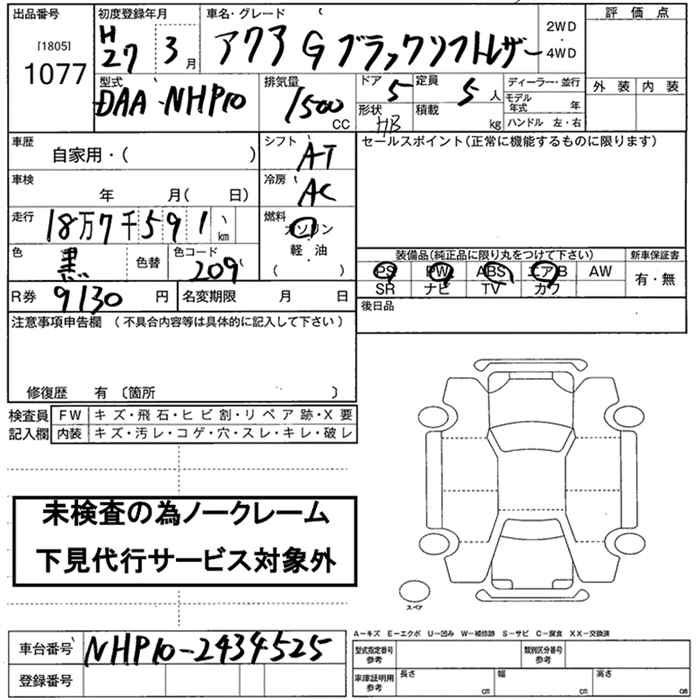 出品番号 初度登録年月 車名・グレード 評価点
[1805] 1077 H27 3月 アクア G ブラックソフトレザー 2WD・4WD 外装 内装
型式 排気量 ドア 定員 ディーラー・並行
DAA-NHP10 1500 CC 5 5人 モデル年式 年
形状 HB 積載 kg ハンドル 左・右
車歴 自家用・( ) シフト AT セールスポイント(正常に機能するものに限ります)
車検 年 月( 日) 冷房 AC
走行 18万7千591 km 燃料 ガソリン 軽・油 ( )
色 黒 色替 色コード 209 装備品(純正品に限り丸をつけて下さい) 新車保証書
PS PW ABS エアB AW 有・無
SR ナビ TV カワ
R券 9130 円 名変期限 月 日 後日品
注意事項申告欄 (不具合内容等は具体的に記入して下さい)
修復歴 有 〔箇所 〕
検査員 FW キズ・飛石・ヒビ割・リペア跡・X要
記入欄 内装 キズ・汚レ・コゲ・穴・スレ・キレ・破レ
未検査の為ノークレーム
下見代行サービス対象外
スペア
A-キズ E-エクボ U-凹み W-補修跡 S-サビ C-腐食 XX-交換済
車台番号 NHP10-2434525 型式指定番号 参考 類別区分番号 参考
登録番号 車庫証明用 参考 長さ cm 幅 cm 高さ cm